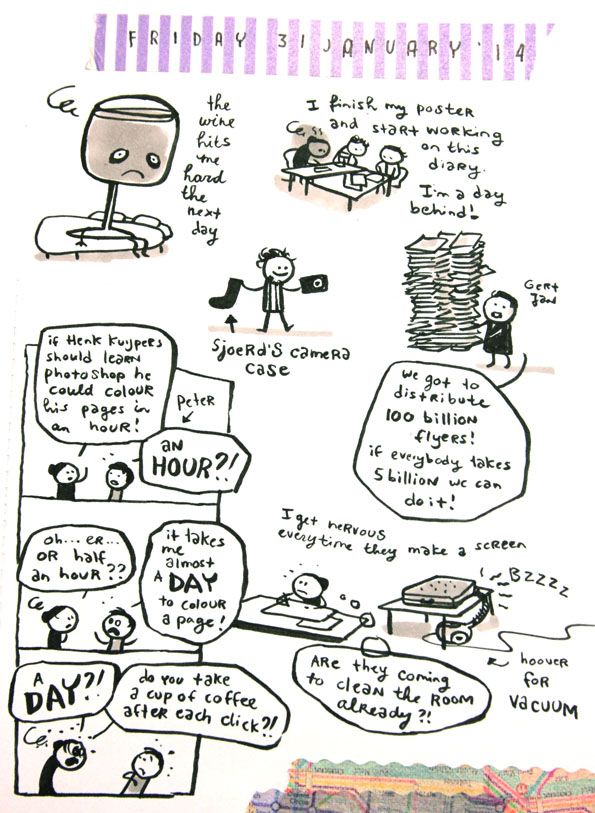 FRIDAY 31 JANUARY '14
the
wine
hits
me
hard
the
next
day
I finish my poster
and start working
on this
diary.
I'm a day
behind!
Sjoerd's camera
case
Gert
Jan
we got to
distribute
100 billion
flyers!
if everybody takes
5 billion we can
do it!
if Henk Kuijpers
should learn
photoshop he
could colour
his pages in
an hour!
Peter
an
HOUR?!
oh... er...
OR half
an hour??
it takes
me
almost
A DAY
to colour
a page!
A
DAY?!
do you take
a cup of coffee
after each click?!
I get nervous
everytime they make a screen
BZZZZ
hoover
for
vacuum
Are they coming
to clean the room
already?!